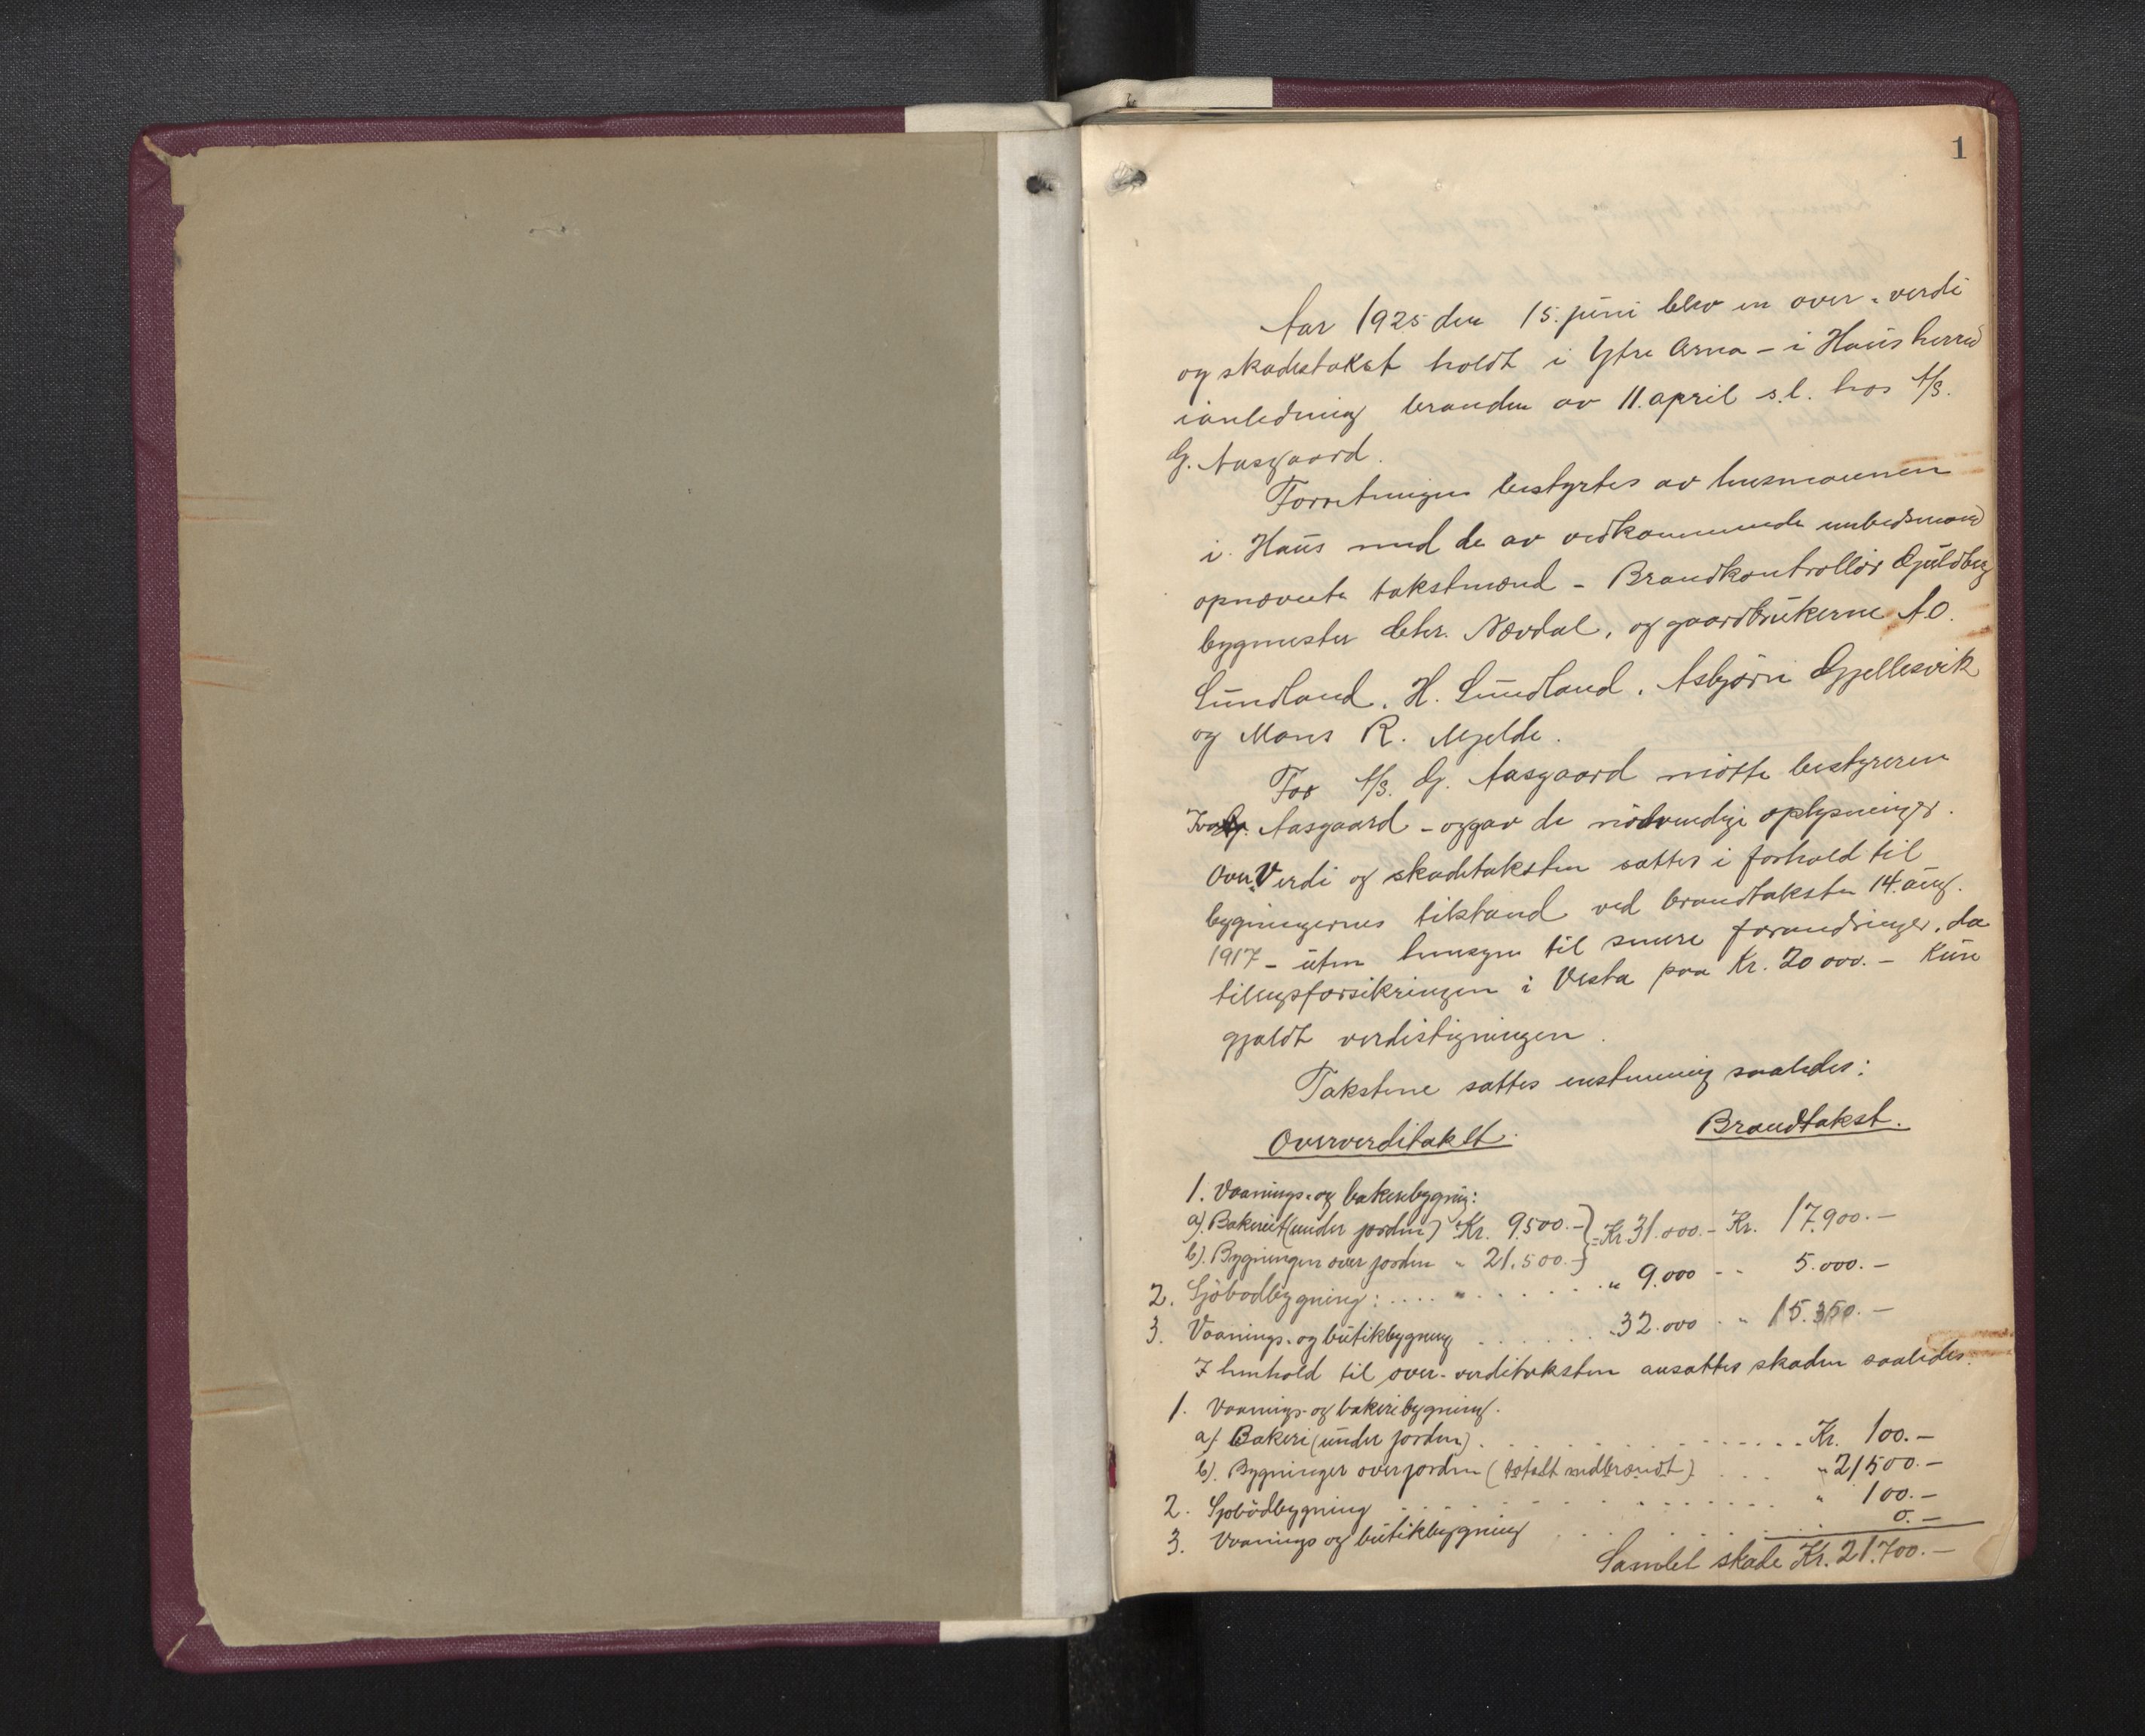 1
Aar 1925 den 15. juni blev en over-verdi
og skadestakst holdt i Ytre Arna - i Haus herred
ianledning branden av 11. april s.l. hos A/S.
G. Aasgaard.
Forretningen bestyrtes av lensmannen
i Haus med de av vedkommende umbudsmand
opnævnte takstmænd - Brandkontrollør Guldberg
bygmester Chr. Nævdal, og gaardbrukerne A O.
Lundland, H. Lundland, Asbjørn Gjellesvik
og Mons R. Mjelde.
For A/S. G. Aasgaard møtte bestyreren
Aasgaard - og gav de nødvendige oplysninger.
Over-Verdi og skadetaksten sættes i forhold til
bygningernes tilstand ved brandtaksten 14. aug.
1917 - uten hensyn til senere forandringer, da
tillegsforsikringen i Vesta paa Kr. 20 000.- kun
gjaldt verdistigningen.
Takstene sattes enstemmig saaledes:
Oververditakst. Brandtakst.
1. Vaanings- og bakeribygning:
a). Bakeriet (under jorden) Kr. 9.500.- } = Kr. 31.000.- Kr. 17.900.-
b). Bygningen over jorden " 21.500.- }
2. Sjøbodbygning: .... " . . . . . . " 9.000 - " 5.000.-
3. Vaanings- og butikbygning . . . . . . " 32.000 - " 15.350.-
I henhold til over-verditaksten ansattes skaden saaledes:
1. Vaanings- og bakeribygning.
a). Bakeri (under jorden) . . . . . . . . . . Kr. 100.-
b). Bygninger over jorden (totalt nedbrændt) . . . " 21500.-
2. Sjøbodbygning . . . . . . . . . . " 100.-
3. Vaanings og butikbygning . . . . . . . 0.-
Samlet skade Kr. 21.700.-